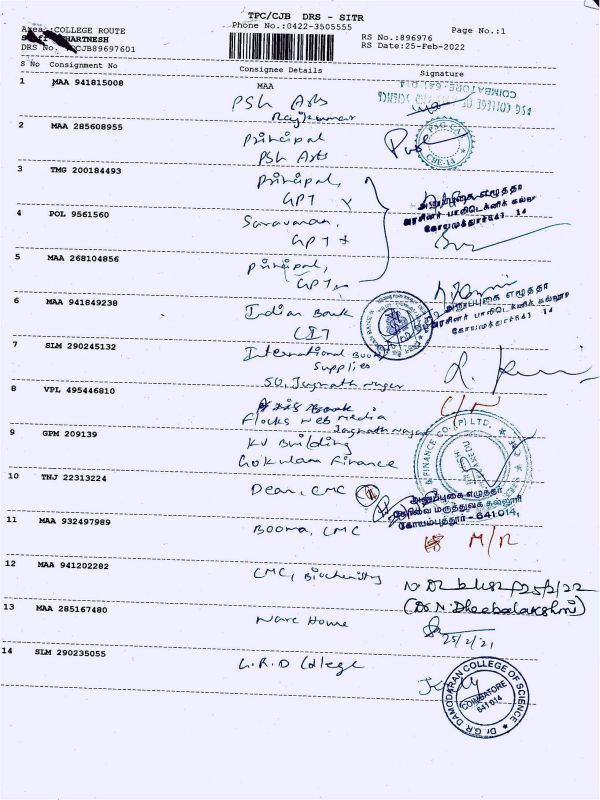 TPC/CJB DRS - SITR
Phone No.:0422-3505555
Page No.:1
Area :COLLEGE ROUTE
HARTNESH
DRS No. TPCJB89697601
RS No.:896976
RS Date:25-Feb-2022
S No Consignment No Consignee Details Signature
1 MAA 941815008 MAA
PSG Arts
Rajkumar
PSG COLLEGE OF ARTS AND SCIENCE
COIMBATORE-641 014
2 MAA 285608955 Principal
PSG Arts
PSG CAS
CBE-14
3 TMG 200184493 Principal,
GPT
அனுப்புகை எழுத்தர்
கோயமுத்தூர்-641 14
4 POL 9561560 Saravanan,
GPT
5 MAA 268104856 Principal,
GPT
6 MAA 941849238 Indian Bank
CIT
அனுப்புகை எழுத்தர்
கோயமுத்தூர்-641 14
7 SLM 290245132 International Book
Supplies
50, Jagnath Nagar
8 VPL 495446810
C/N
Flocks Web Media
Jagnath Nagar
9 GPM 209139 KV Building
Gokulam Finance
FINANCE CO.(P) LTD.
10 TNJ 22313224 Dean, CMC
அனுப்புகை எழுத்தர்
மருத்துவக் கல்லூரி
கோயம்புத்தூர் - 641 014.
11 MAA 932497989 Booma, CMC
M/R
12 MAA 941202282 CMC, Biochemistry
25/2/22
(Dr. N. Dheebalakshmi)
13 MAA 285167480 Ware Home
25/2/21
14 SLM 290235055 G.R.D College
Dr.G.R DAMODARAN COLLEGE OF SCIENCE
COIMBATORE
641 014